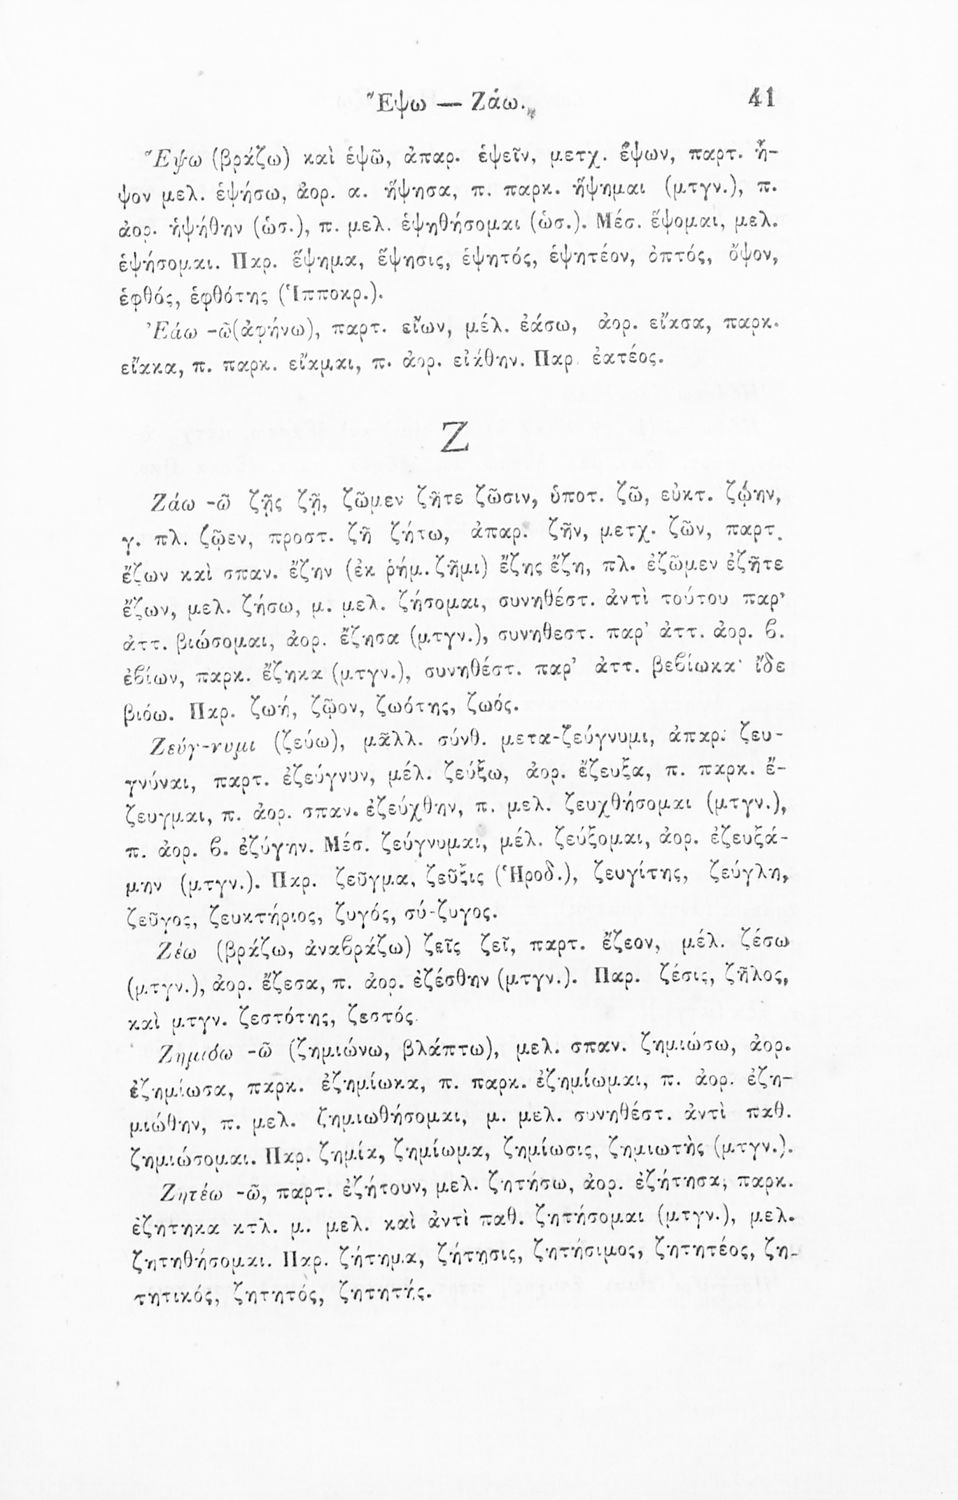 Ἕψω — Ζάω. 41
Ἕψω (βράζω) καὶ ἑψῶ, ἀπαρ. ἑψεῖν, μετχ. ἕψων, παρτ. ἧ-
ψον μελ. ἑψήσω, ἀορ. α. ἥψησα, π. παρκ. ἥψημαι (μτγν.), π.
ἀορ. ἡψήθην (ὡσ.), π. μελ. ἑψηθήσομαι (ὡσ.). Μέσ. ἕψομαι, μελ.
ἑψήσομαι. Παρ. ἕψημα, ἕψησις, ἑψητός, ἑψητέον, ὀπτός, ὄψον,
ἑφθός, ἑφθότης (Ἱπποκρ.).
Ἐάω -ῶ(ἀφήνω), παρτ. εἴων, μέλ. ἐάσω, ἀορ. εἴασα, παρκ.
εἴακα, π. παρκ. εἴαμαι, π. ἀορ. εἰάθην. Παρ. ἐατέος.
Ζ
Ζάω -ῶ ζῇς ζῇ, ζῶμεν ζῆτε ζῶσιν, ὑποτ. ζῶ, εὐκτ. ζῴην,
γ. πλ. ζῷεν, προστ. ζῆ ζήτω, ἀπαρ. ζῆν, μετχ. ζῶν, παρτ.
ἔζων καὶ σπαν. ἔζην (ἐκ ῥήμ. ζῆμι) ἔζης ἔζη, πλ. ἐζῶμεν ἐζῆτε
ἔζων, μελ. ζήσω, μ. μελ. ζήσομαι, συνηθέστ. ἀντὶ τούτου παρ'
ἀττ. βιώσομαι, ἀορ. ἔζησα (μτγν.), συνηθεστ. παρ' ἀττ. ἀορ. β.
ἐβίων, παρκ. ἔζηκα (μτγν.), συνηθέστ. παρ' ἀττ. βεβίωκα· ἴδε
βιόω. Παρ. ζωή, ζῷον, ζωότης, ζωός.
Ζεύγ-νυμι (ζεύω), μᾶλλ. σύνθ. μετα-ζεύγνυμι, ἀπαρ. ζευ-
γνύναι, παρτ. ἐζεύγνυν, μέλ. ζεύξω, ἀορ. ἔζευξα, π. παρκ. ἔ-
ζευγμαι, π. ἀορ. σπαν. ἐζεύχθην, π. μελ. ζευχθήσομαι (μτγν.),
π. ἀορ. β. ἐζύγην. Μέσ. ζεύγνυμαι, μέλ. ζεύξομαι, ἀορ. ἐζευξά-
μην (μτγν.). Παρ. ζεῦγμα, ζεῦξις (Ἡροδ.), ζευγίτης, ζεύγλη,
ζεῦγος, ζευκτήριος, ζυγός, σύ-ζυγος.
Ζέω (βράζω, ἀναβράζω) ζεῖς ζεῖ, παρτ. ἔζεον, μέλ. ζέσω
(μτγν.), ἀορ. ἔζεσα, π. ἀορ. ἐζέσθην (μτγν.). Παρ. ζέσις, ζῆλος,
καὶ μτγν. ζεστότης, ζεστός.
Ζημιόω -ῶ (ζημιώνω, βλάπτω), μελ. σπαν. ζημιώσω, ἀορ.
ἐζημίωσα, παρκ. ἐζημίωκα, π. παρκ. ἐζημίωμαι, π. ἀορ. ἐζη-
μιώθην, π. μελ. ζημιωθήσομαι, μ. μελ. συνηθέστ. ἀντὶ παθ.
ζημιώσομαι. Παρ. ζημία, ζημίωμα, ζημίωσις, ζημιωτής (μτγν.).
Ζητέω -ῶ, παρτ. ἐζήτουν, μελ. ζητήσω, ἀορ. ἐζήτησα, παρκ.
ἐζητηκα κτλ. μ. μελ. καὶ ἀντὶ παθ. ζητήσομαι (μτγν.), μελ.
ζητηθήσομαι. Παρ. ζήτημα, ζήτησις, ζητήσιμος, ζητητέος, ζη-
τητικός, ζητητός, ζητητής.